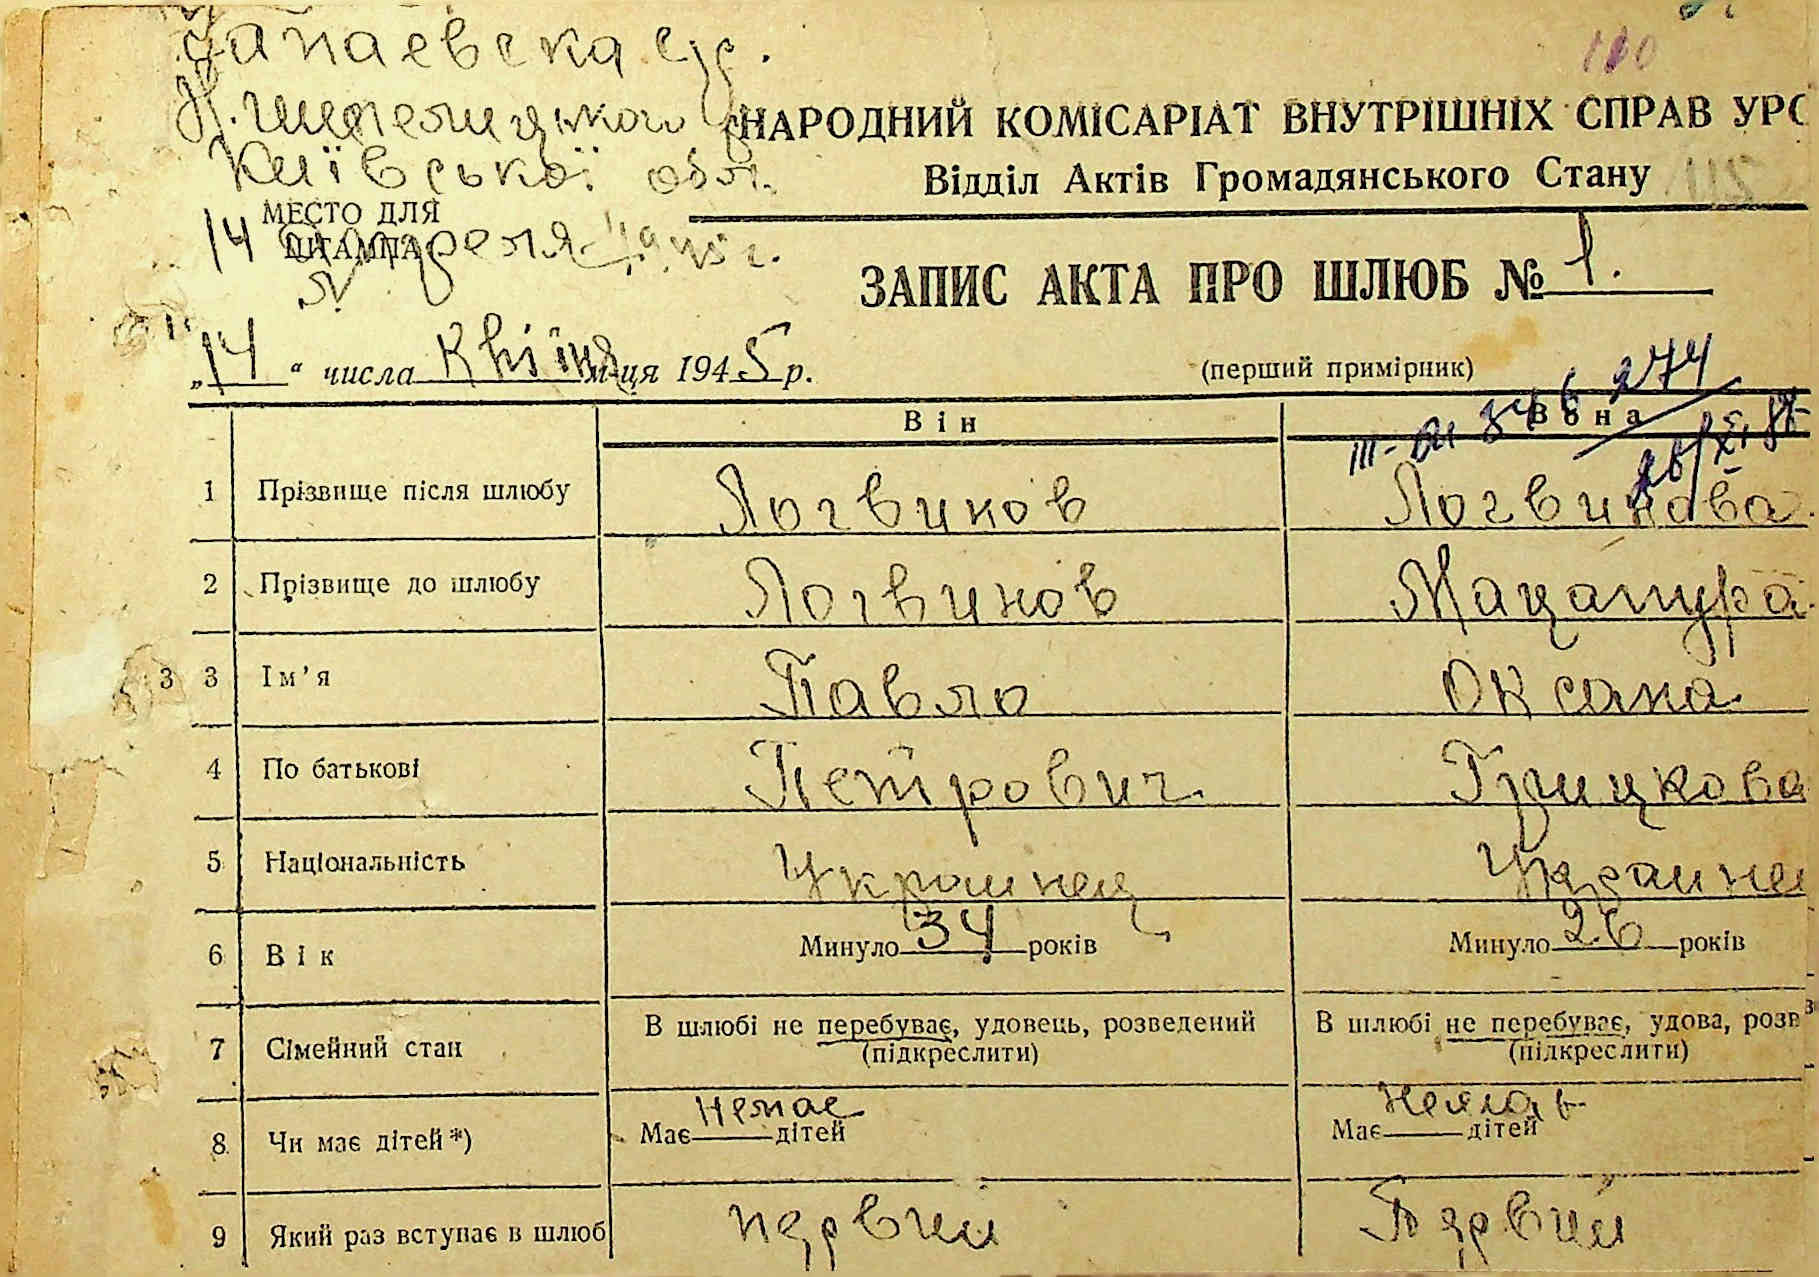 Чапаевска с/р.
100
Н. Шепелицького
НАРОДНИЙ КОМІСАРІАТ ВНУТРІШНІХ СПРАВ УРС
Київської обл.
Відділ Актів Громадянського Стану
МЕСТО ДЛЯ
ШТАМПА
14 апреля 1945 г.
ЗАПИС АКТА ПРО ШЛЮБ № 1.
„14“ числа Квітня м-ця 1945 р.
(перший примірник)
Він Вона
1 Прізвище після шлюбу Логвинов Логвинова.
2 Прізвище до шлюбу Логвинов Мацапура.
3 3 Ім’я Павло Оксана
4 По батькові Петрович Грицкова
5 Національність Украинец Украинец
6 Вік Минуло 34 років Минуло 26 років
7 Сімейний стан В шлюбі не перебуває, удовець, розведений В шлюбі не перебуває, удова, розв
(підкреслити) (підкреслити)
8 Чи має дітей*) Має немає дітей Має дітей
9 Який раз вступає в шлюб первий Первий